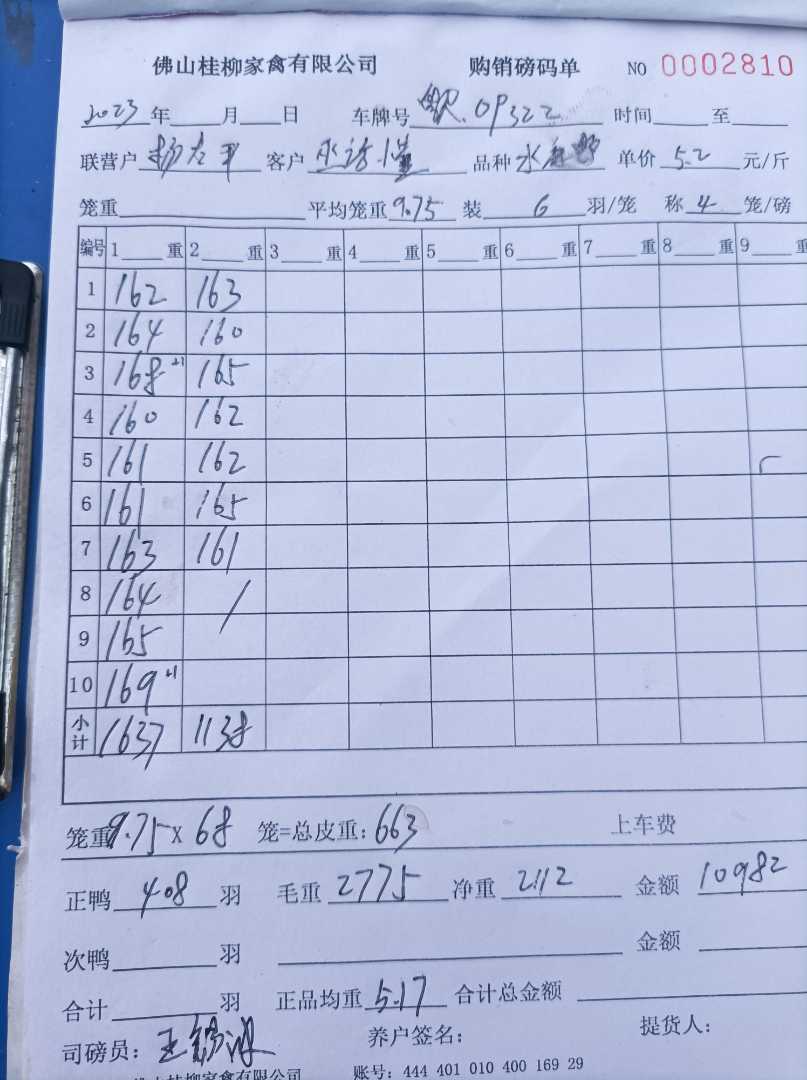 佛山桂柳家禽有限公司 购销磅码单 NO 0002810
2023年 月 日 车牌号 .0P322 时间 至
联营户 杨 平 客户 品种 水 单价 5.2 元/斤
笼重 平均笼重 9.75 装 6 羽/笼 称 4 笼/磅
编号 1 重 2 重 3 重 4 重 5 重 6 重 7 重 8 重 9 重
1 162 163
2 164 160
3 168 +1 165
4 160 162
5 161 162
6 161 165
7 163 161
8 164 /
9 165
10 169 +1
小计 1637 1138
笼重 9.75 X 68 笼=总皮重: 663 上车费
正鸭 408 羽 毛重 2775 净重 2112 金额 10982
次鸭 羽 金额
合计 羽 正品均重 5.17 合计总金额
司磅员: 王 养户签名: 提货人:
佛山桂柳家禽有限公司 账号: 444 401 010 400 169 29